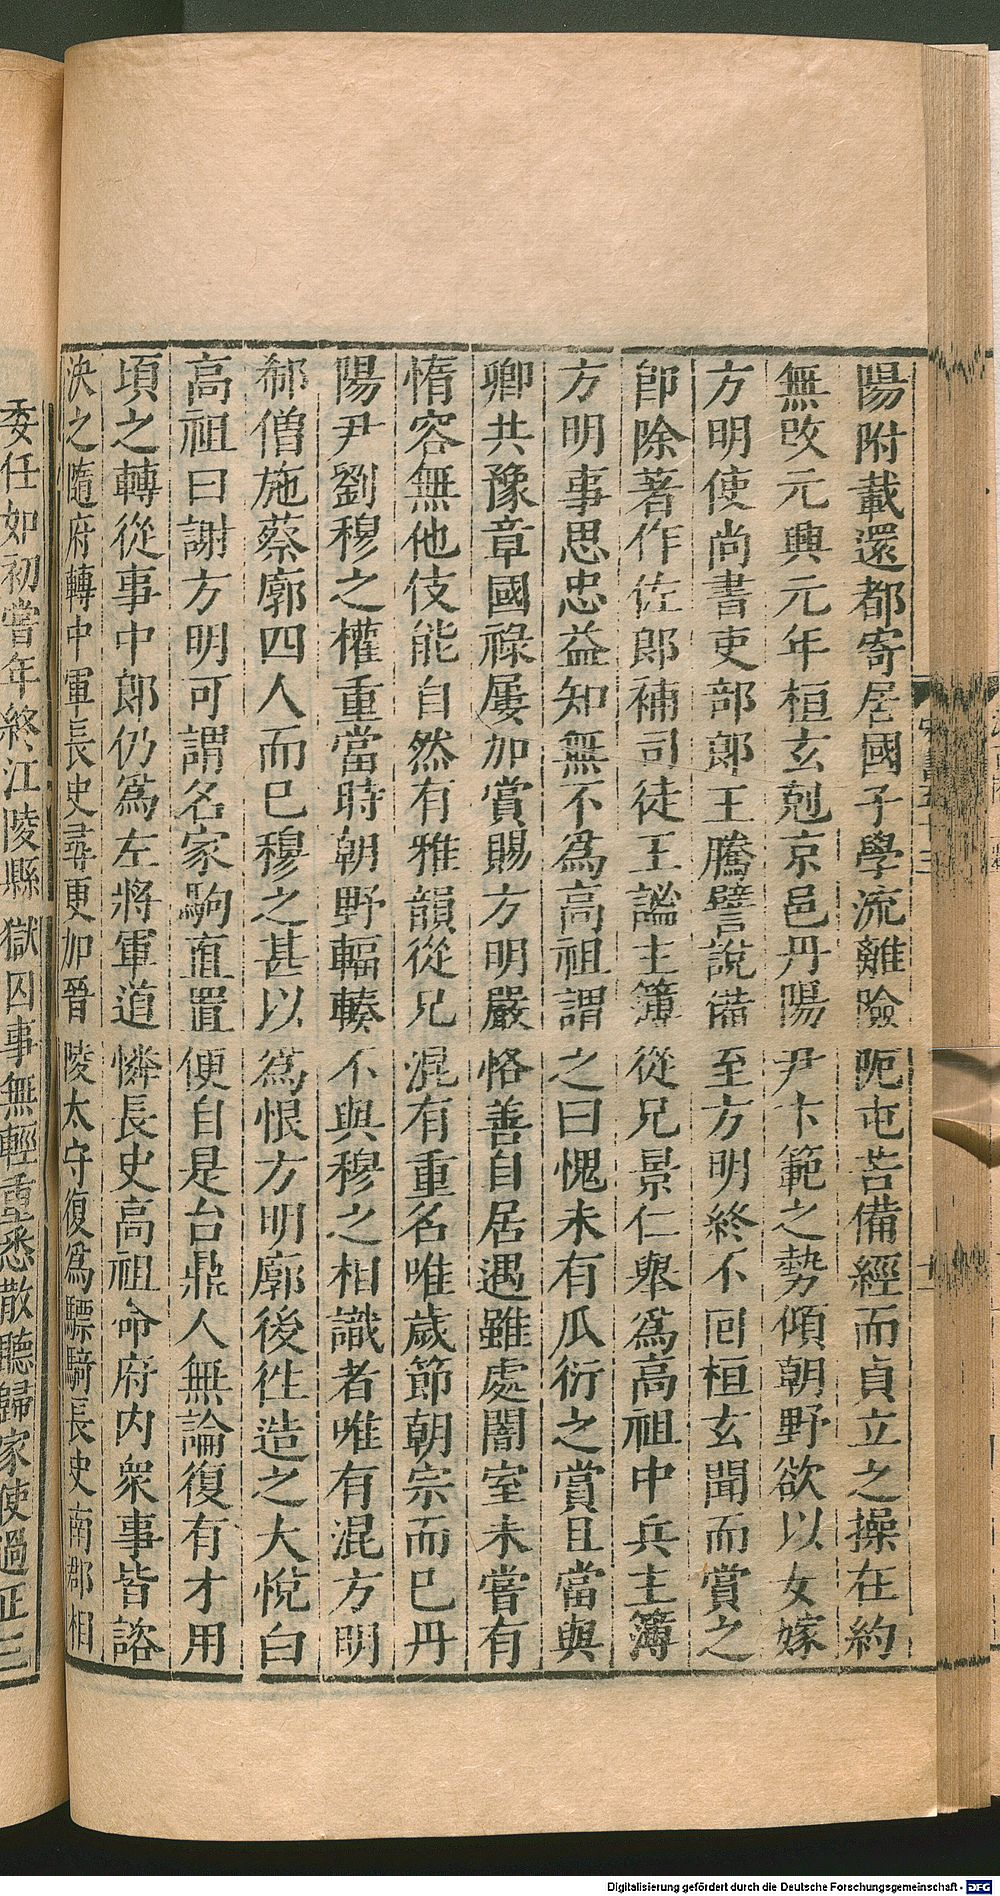 陽附載還都寄居國子學流離險阨屯苦備經而貞立之操在約
無改元興元年桓玄剋京邑丹陽尹卞範之勢傾朝野欲以女嫁
方明使尚書吏部郎王騰譬說備至方明終不回桓玄聞而賞之
即除著作佐郎補司徒王謐主簿從兄景仁舉爲高祖中兵主簿
方明事思忠益知無不爲高祖謂之曰愧未有瓜衍之賞且當與
卿共豫章國祿屢加賞賜方明嚴恪善自居遇雖處闇室未嘗有
惰容無他伎能自然有雅韻從兄混有重名唯歲節朝宗而已丹
陽尹劉穆之權重當時朝野輻輳不與穆之相識者唯有混方明
郗僧施蔡廓四人而已穆之甚以爲恨方明廓後徃造之大悅白
高祖曰謝方明可謂名家駒直置便自是台鼎人無論復有才用
頃之轉從事中郎仍爲左將軍道憐長史高祖命府内衆事皆諮
決之隨府轉中軍長史尋更加晉陵太守復爲驃騎長史南郡相
委任如初嘗年終江陵縣獄囚事無輕重悉散聽歸家使過正三
Digitalisierung gefördert durch die Deutsche Forschungsgemeinschaft - DFG